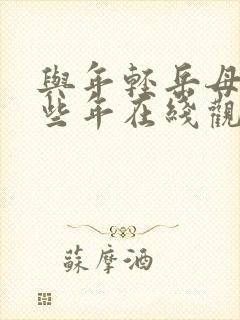 與年輕岳母
些年在綫觀
蘇摩酒